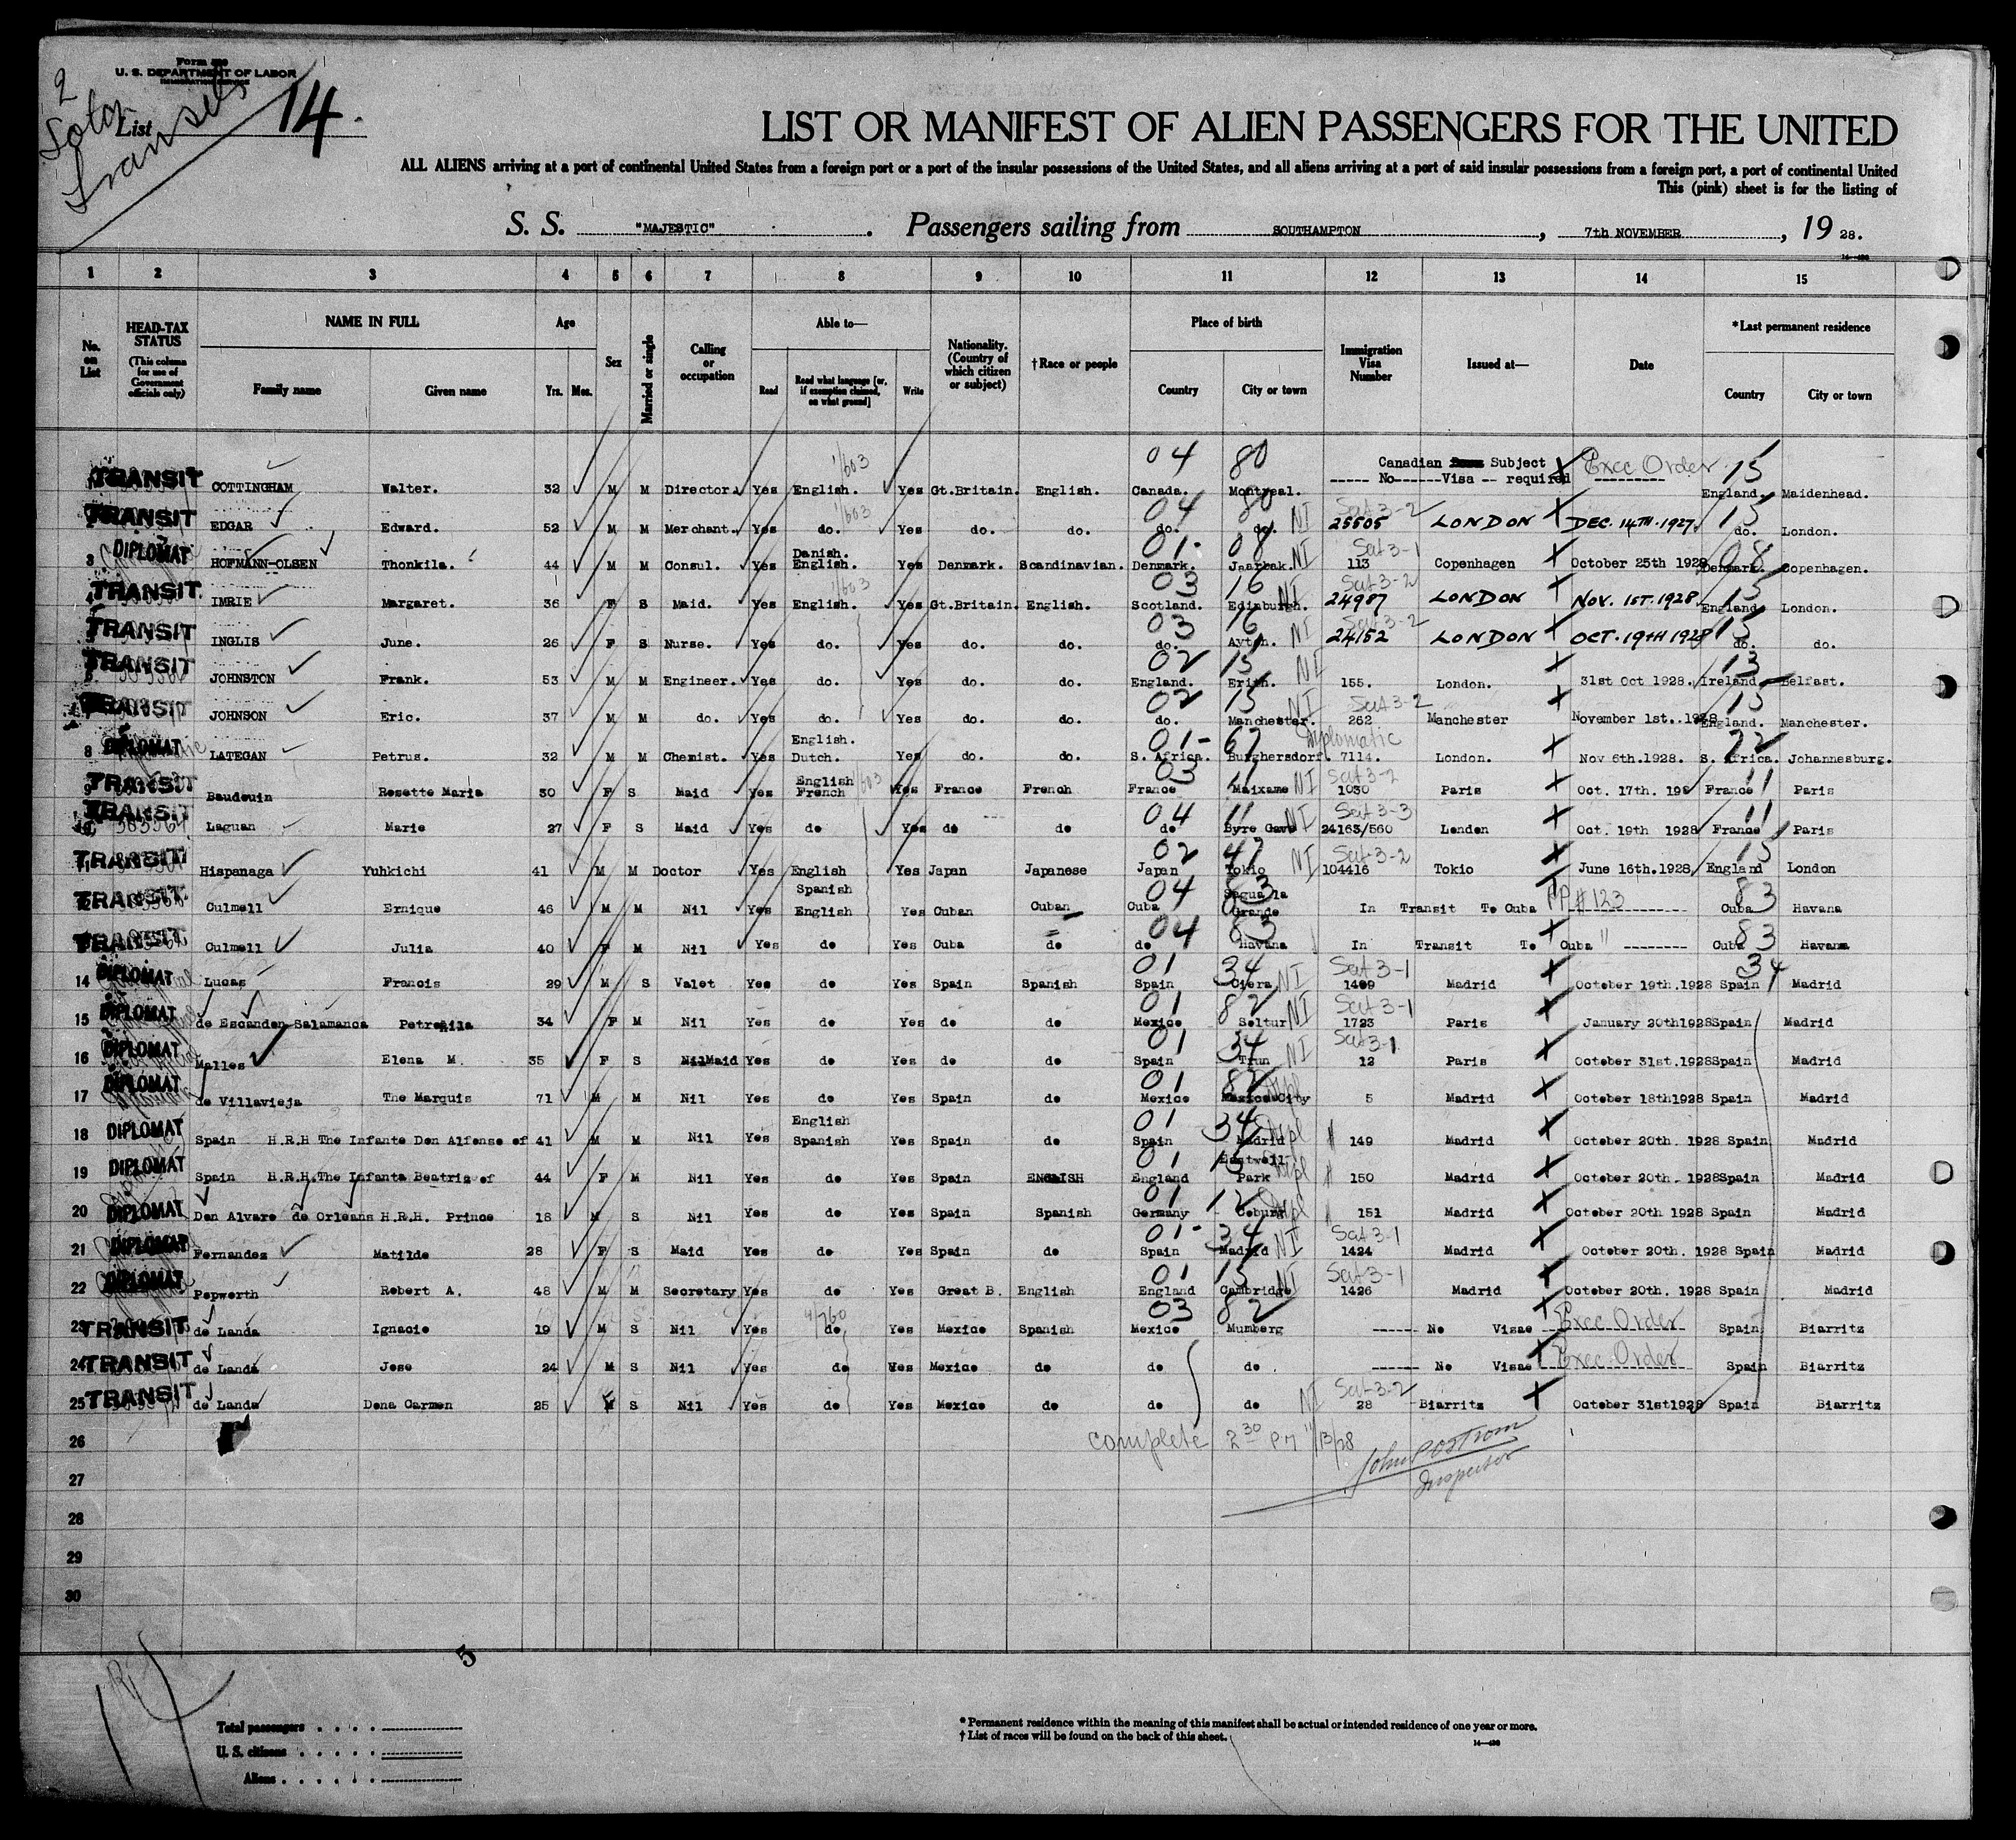 Form
U. S. DEPARTMENT OF LABOR
2
Soton
Transits
List 14.
LIST OR MANIFEST OF ALIEN PASSENGERS FOR THE UNITED
ALL ALIENS arriving at a port of continental United States from a foreign port or a port of the insular possessions of the United States, and all aliens arriving at a port of said insular possessions from a foreign port, a port of continental United
This (pink) sheet is for the listing of
S. S. "MAJESTIC". Passengers sailing from SOUTHAMPTON, 7th NOVEMBER, 19 28.
1 2 3 4 5 6 7 8 9 10 11 12 13 14 15
No. on List HEAD-TAX STATUS (This column for use of Government officials only) NAME IN FULL Family name Given name Age Yrs. Mos. Sex Married or single Calling or occupation Able to— Read Read what language [or, if exemption claimed, on what ground] Write Nationality. (Country of which citizen or subject) †Race or people Place of birth Country City or town Immigration Visa Number Issued at— Date *Last permanent residence Country City or town
04 80 Canadian Subject Exec Order 15
TRANSIT COTTINGHAM Walter. 32 M M Director. Yes English. Yes Gt.Britain. English. Canada. Montreal. ----- No------Visa -- required --------- England. Maidenhead.
04 80 Sect 3-2 15
TRANSIT EDGAR Edward. 52 M M Merchant. Yes do. Yes do. do. do. do. NI 25505 LONDON DEC. 14TH. 1927. do. London.
01- 08 Sect 3-1 08
3 DIPLOMAT HOFMANN-OLSEN Thonkila. 44 M M Consul. Yes Danish. English. Yes Denmark. Scandinavian. Denmark. Jaarbak. NI 113 Copenhagen October 25th 1928 Denmark. Copenhagen.
03 16 Sect 3-2 15
4 TRANSIT IMRIE Margaret. 36 F S Maid. Yes English. Yes Gt.Britain. English. Scotland. Edinburgh. NI 24987 LONDON NOV. 1ST. 1928. England London.
03 16 Sect 3-2 15
TRANSIT INGLIS June. 26 F S Nurse. Yes do. Yes do. do. do. Ayton. NI 24152 LONDON OCT. 19TH 1928 do. do.
02 15 NI 13
6 TRANSIT JOHNSTON Frank. 53 M M Engineer. Yes do. Yes do. do. England. Erith. 155. London. 31st Oct 1928. Ireland Belfast.
02 15 Sect 3-2 15
TRANSIT JOHNSON Eric. 37 M M do. Yes do. Yes do. do. do. Manchester. NI 262 Manchester November 1st. 1928 England. Manchester.
01- 67 Diplomatic 72
8 DIPLOMAT LATEGAN Petrus. 32 M M Chemist. Yes English. Dutch. Yes do. do. S. Africa. Burghersdorf. 7114. London. Nov 6th.1928. S. Africa. Johannesburg.
03 11 Sect 3-2 11
9 TRANSIT Baudouin Rosette Marie 30 F S Maid Yes English French Yes France French France Maixame NI 1030 Paris Oct. 17th. 192 France Paris
04 11 Sect 3-3 11
10 TRANSIT Laguan Marie 27 F S Maid Yes do Yes do do do Byre Gave NI 24163/560 London Oct. 19th 1928 France Paris
02 47 Sect 3-2 15
TRANSIT Hispanaga Yuhkichi 41 M M Doctor Yes English Yes Japan Japanese Japan Tokio NI 104416 Tokio June 16th.1928 England London
04 83 PP# 123 83
TRANSIT Culmell Ernique 46 M M Nil Yes Spanish English Yes Cuban Cuban Cuba Sagua la Grande In Transit To Cuba ------------- Cuba Havana
04 83 83
TRANSIT Culmell Julia 40 F M Nil Yes do Yes Cuba do do Havana In Transit To Cuba " -------- Cuba Havana
01 34 Sect 3-1 34
14 DIPLOMAT Lucas Francis 29 M S Valet Yes do Yes Spain Spanish Spain Ciera NI 1409 Madrid October 19th.1928 Spain Madrid
01 82 Sect 3-1
15 DIPLOMAT de Escandon Salamanca Petronila 34 F M Nil Yes do Yes do do Mexico Soltur NI 1723 Paris January 20th1928 Spain Madrid
01 34 Sect 3-1
16 DIPLOMAT Malles Elena M. 35 F S Nil Maid Yes do Yes do do Spain Irun NI 12 Paris October 31st.1928 Spain Madrid
01 82 Dipl
17 DIPLOMAT de Villavieja The Marquis 71 M M Nil Yes do Yes Spain do Mexico Mexico City 5 Madrid October 18th1928 Spain Madrid
01 34 Dipl
18 DIPLOMAT Spain H.R.H The Infante Don Alfonso of 41 M M Nil Yes English Spanish Yes Spain do Spain Madrid # 149 Madrid October 20th. 1928 Spain Madrid
01 15 Dipl
19 DIPLOMAT Spain H.R.H. The Infanta Beatrix of 44 F M Nil Yes do Yes Spain ENGLISH England Eastwell Park # 150 Madrid October 20th. 1928 Spain Madrid
01 12 Dipl
20 DIPLOMAT Don Alvaro de Orleans H.R.H. Prince 18 M S Nil Yes do Yes Spain Spanish Germany Coburg 151 Madrid October 20th 1928 Spain Madrid
01- 34 Sect 3-1
21 DIPLOMAT Fernandez Matilde 28 F S Maid Yes do Yes Spain do Spain Madrid NI 1424 Madrid October 20th. 1928 Spain Madrid
01 15 Sect 3-1
22 DIPLOMAT Pepworth Robert A. 48 M M Secretary Yes do Yes Great B. English England Cambridge NI 1426 Madrid October 20th. 1928 Spain Madrid
03 82 Exec Order
23 TRANSIT de Landa Ignacio 19 M S Nil Yes do Yes Mexico Spanish Mexico Mumberg ------ No Visae Spain Biarritz
24 TRANSIT de Landa Jose 24 M S Nil Yes do Yes Mexico do do do ------ No Visae Exec. Order Spain Biarritz
Sect 3-2
25 TRANSIT de Landa Dona Carmen 25 F S Nil Yes do Yes Mexico do do do NI 28 Biarritz October 31st1928 Spain Biarritz
26 complete 2 30 PM 11/13/28
John Postrom
27 Inspector
28
29
30
5
14
Total passengers
U. S. citizens
Aliens
* Permanent residence within the meaning of this manifest shall be actual or intended residence of one year or more.
† List of races will be found on the back of this sheet.